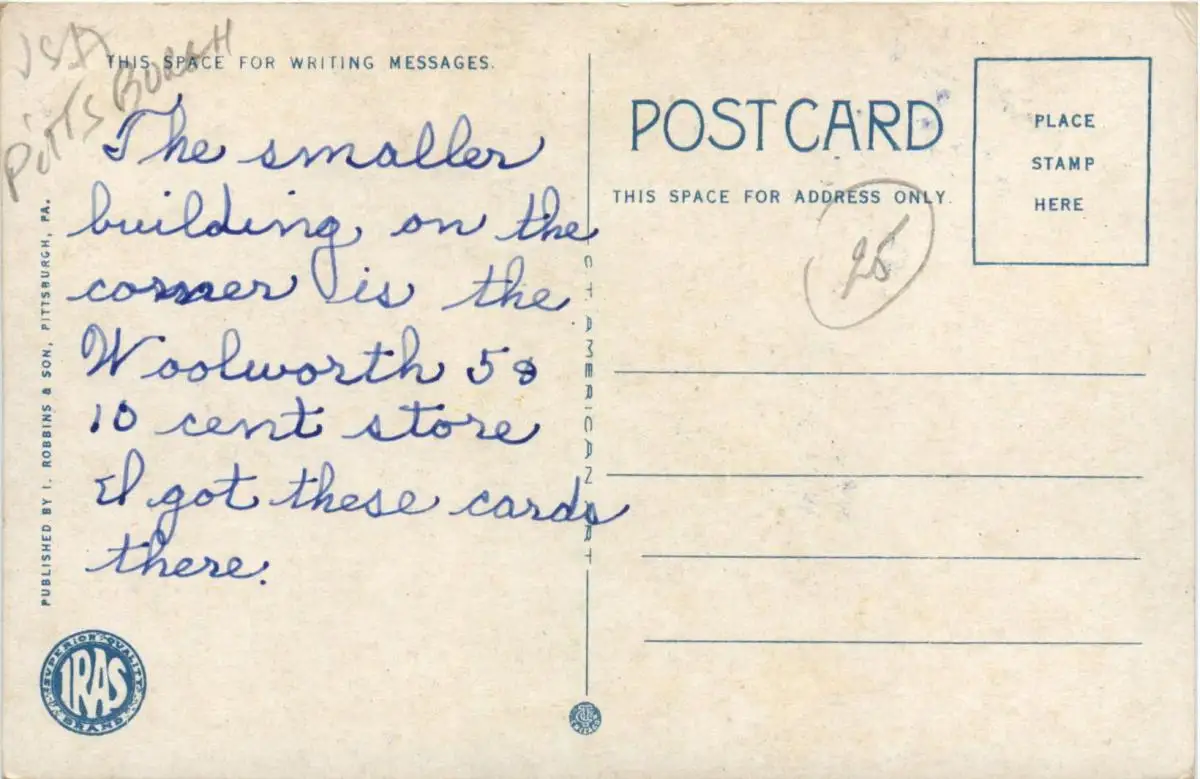 USA
PITTSBURGH
THIS SPACE FOR WRITING MESSAGES.
The smaller
building on the
corner is the
Woolworth 5 &
10 cent store
I got these cards
there.
PUBLISHED BY I. ROBBINS & SON, PITTSBURGH, PA.
SUPERIOR QUALITY
IRAS
BRAND
C.T. AMERICAN ART
POSTCARD
THIS SPACE FOR ADDRESS ONLY.
25
PLACE
STAMP
HERE